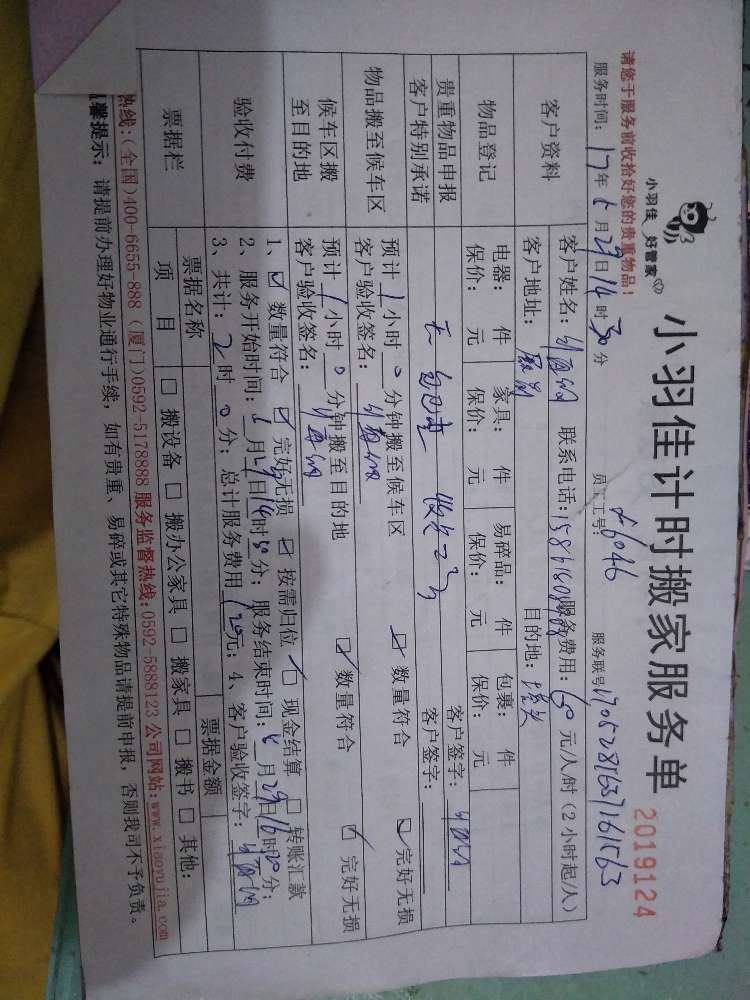 小羽佳 好管家
小羽佳计时搬家服务单
2019124
请您于服务前收拾好您的贵重物品!
员工工号: 服务联号
服务时间: 17年5月29日14时30分
客户资料
客户姓名: 联系电话: 服务费用: 60元/人/时(2小时起/人)
客户地址: 目的地:
物品登记
电器: 件 家具: 件 易碎品: 件 包裹: 件
保价: 元 保价: 元 保价: 元 保价: 元
贵重物品申报
客户特别承诺
客户签字:
客户签字:
物品搬至候车区
预计1小时0分钟搬至候车区 数量符合 完好无损
客户验收签名:
候车区搬
至目的地
预计1小时0分钟搬至目的地 数量符合 完好无损
客户验收签名:
验收付费
1、数量符合 完好无损 按需归位 现金结算 转账汇款
2、服务开始时间: 月29日14时30分; 服务结束时间: 月29日16时30分;
3、共计: 2时0分; 总计服务费用120元; 4、客户验收签字:
票据栏
票据名称 票据金额
项目 搬设备 搬办公家具 搬家具 搬书 其他:
热线:(全国)400-6655-888 (厦门)0592-5178888 服务监督热线:0592-5888123 公司网站:www.xiaoyujia.com
馨提示: 请提前办理好物业通行手续, 如有贵重、易碎或其它特殊物品请提前申报, 否则我司不予负责。